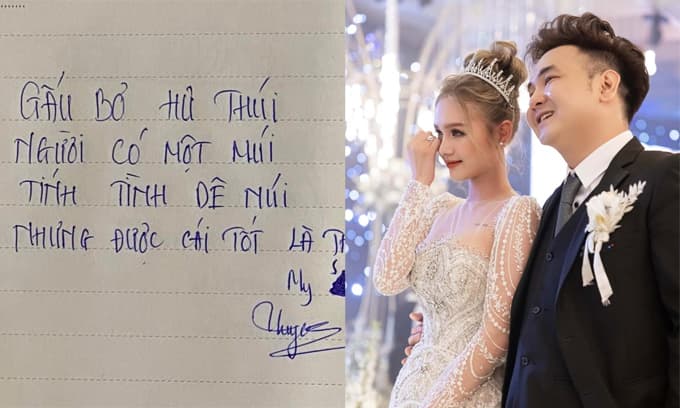 GẤU BỞ HƯ THÚI
NGƯỜI CÓ MỘT MÚI
TÍNH TÌNH DÊ NÚI
NHƯNG ĐƯỢC CÁI TỐT LÀ
My